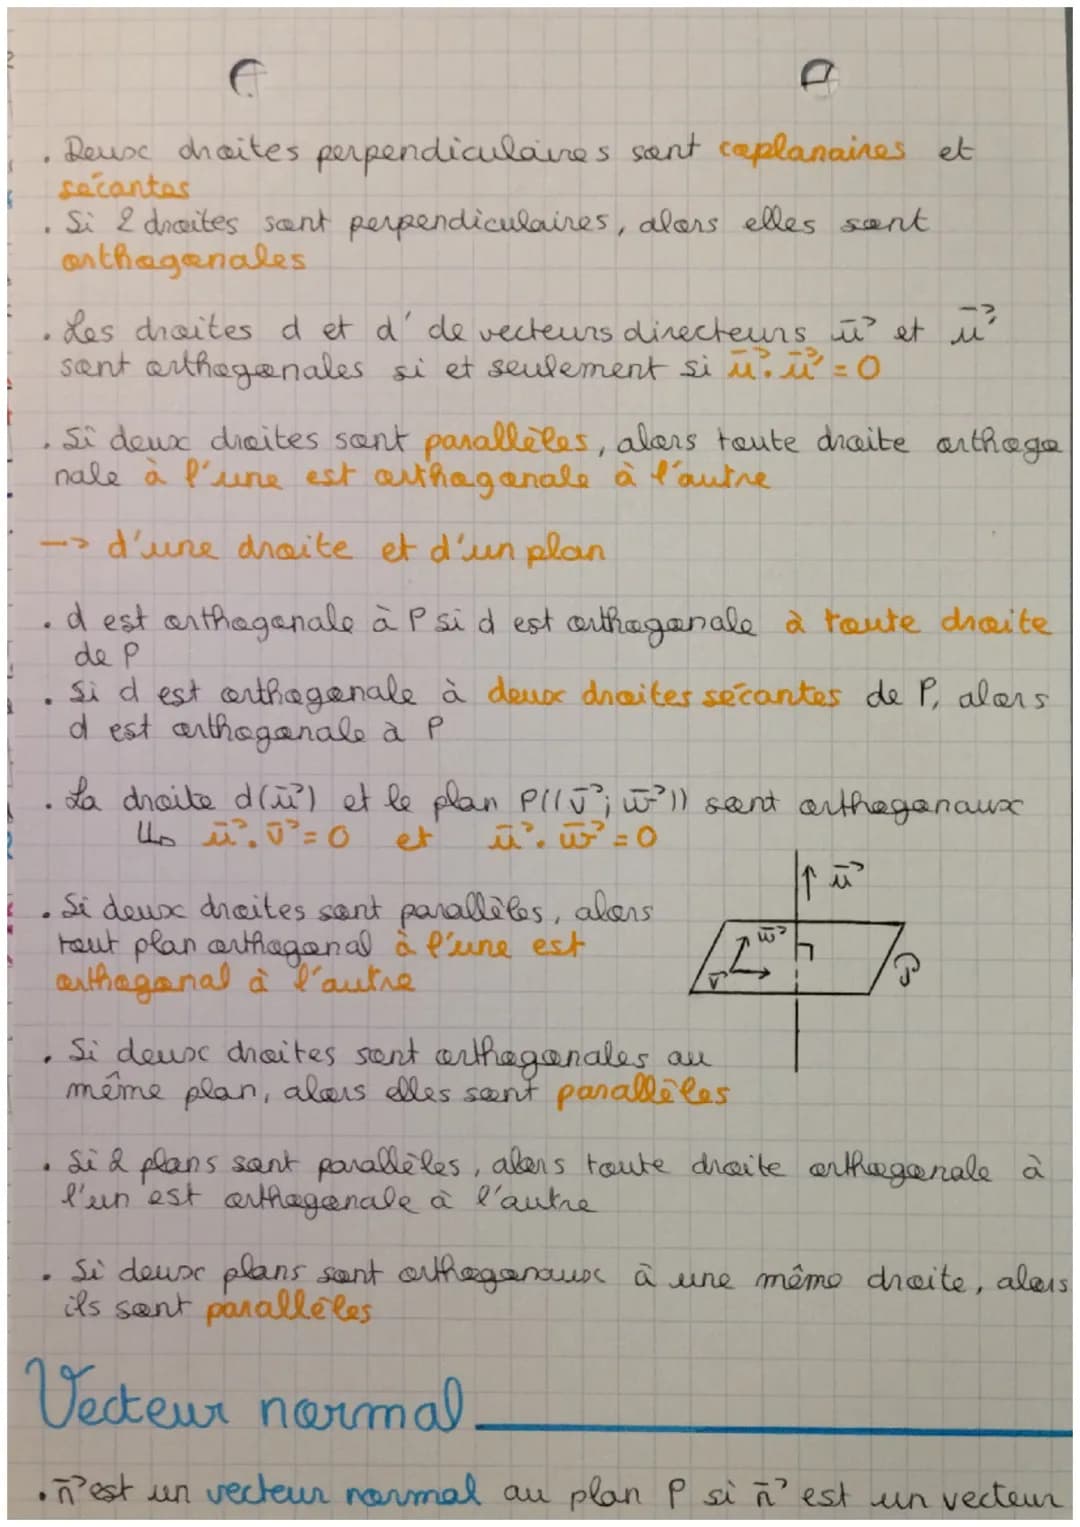 . Deux droites perpendiculaires sont coplanaires et
sécantes
. Si 2 droites sont perpendiculaires, alors elles sont
orthogonales
. Les droites d et d' de vecteurs directeurs u⃗ et u⃗'
sont orthogonales si et seulement si u⃗.u⃗'=0
. Si deux droites sont parallèles, alors toute droite orthogo
nale à l'une est orthogonale à l'autre
--> d'une droite et d'un plan
. d est orthogonale à P si d est orthogonale à toute droite
de P
. Si d est orthogonale à deux droites sécantes de P, alors
d est orthogonale à P
. La droite d(u⃗) et le plan P((v⃗; w⃗)) sont orthogonaux
↳ u⃗.v⃗=0 et u⃗.w⃗=0
u⃗
. Si deux droites sont parallèles, alors
tout plan orthogonal à l'une est
orthogonal à l'autre
w⃗
v⃗
P
. Si deux droites sont orthogonales au
même plan, alors elles sont parallèles
. Si 2 plans sont parallèles, alors toute droite orthogonale à
l'un est orthogonale à l'autre
. Si deux plans sont orthogonaux à une même droite, alors
ils sont parallèles
Vecteur normal
. n⃗ est un vecteur normal au plan P si n⃗ est un vecteur